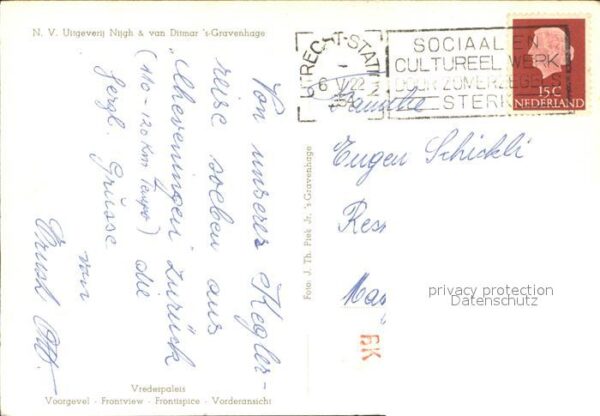 N. V. Uitgeverij Nijgh & van Ditmar 's-Gravenhage
Von unserer Kegler-
reise soeben aus
"Scheveningen" zurück
(110-120 Km Tempo) die
herzl. Grüsse
von
UTRECHT-STATION
6 V 22
SOCIAAL EN
CULTUREEL WERK
DOOR ZOMERZEGELS
STERK
15 C
NEDERLAND
Familie
Eugen Schickli
Res
Ma
privacy protection
Datenschutz
BK
Foto: J. Th. Piek Jr. 's-Gravenhage
Vredespaleis
Voorgevel - Frontview - Frontispice - Vorderansicht